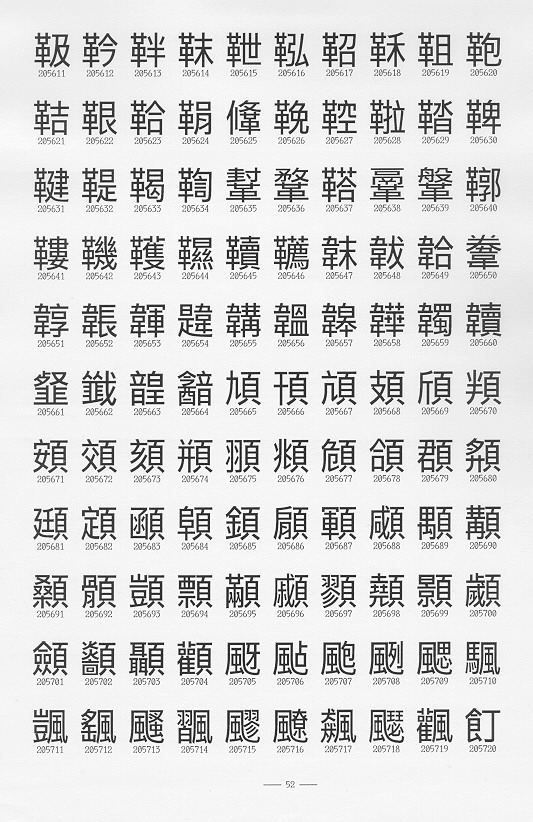 靸 靲 靽 靺 靾 鞃 鞀 鞂 靻 鞄
205611 205612 205613 205614 205615 205616 205617 205618 205619 205620
鞊 鞎 鞈 鞙 鞗 鞔 鞚 鞡 鞜 鞞
205621 205622 205623 205624 205625 205626 205627 205628 205629 205630
鞬 鞮 鞨 鞪 鞳 鞶 鞹
205631 205632 205633 205634 205635 205636 205637 205638 205639 205640
鞻 鞿 韄 韅 韇 韉 韎 韍 韐 韏
205641 205642 205643 205644 205645 205646 205647 205648 205649 205650
韔 韗 韙 韝 韞 韟 韠 韣 韥
205651 205652 205653 205654 205655 205656 205657 205658 205659 205660
韹 韽 頄 頇 頏 頍 頎 頖
205661 205662 205663 205664 205665 205666 205667 205668 205669 205670
頞 頝 頦 頩 頨 頫 頠 頜 頵
205671 205672 205673 205674 205675 205676 205677 205678 205679 205680
頲 顁 顄 顉 顅 顐 顑 顒 顜
205681 205682 205683 205684 205685 205686 205687 205688 205689 205690
顙 顝 顗 顠 顢 顣 顟 顤 顥 顪
205691 205692 205693 205694 205695 205696 205697 205698 205699 205700
顩 顳 顴 颬 颭 颮 颲 颸 颿
205701 205702 205703 205704 205705 205706 205707 205708 205709 205710
颽 颻 颾 飁 飂 飉 飆 飋 飌 飣
205711 205712 205713 205714 205715 205716 205717 205718 205719 205720
— 52 —